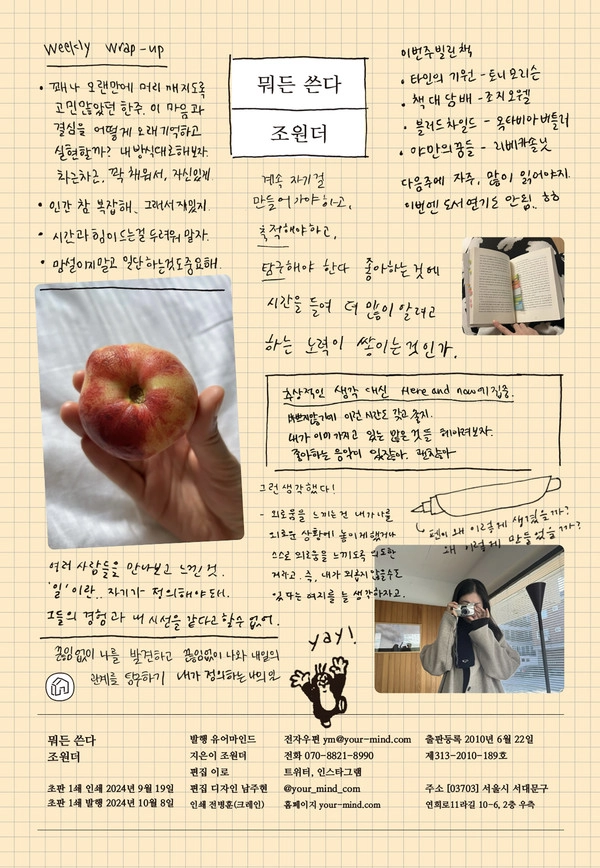 Weekly Wrap-up
• 꽤나 오랜만에 머리 깨지도록
고민 않았던 한주. 이 마음과
결심을 어떻게 오래 기억하고
실현할까? 내 방식대로 해보자.
차근차근, 꽉 채워서, 자신있게.
• 인간 참 복잡해. 그래서 재밌지.
• 시간과 힘이 드는걸 두려워 말자.
• 망설이지말고 일단 하는것도 중요해.
뭐든 쓴다
조원더
이번주 빌린 책
• 타인의 기원 - 토니 모리슨
• 책 대 담배 - 조지 오웰
• 블러드차일드 - 옥타비아 버틀러
• 야만의 꿈들 - 리베카 솔닛
다음주에 자주, 많이 읽어야지.
이번엔 도서 연기도 안됨.. ㅎㅎ
계속 자기걸
만들어 가야 하고,
축적해야 하고,
탐구해야 한다 좋아하는 것에
시간을 들여 더 많이 알려고
하는 노력이 쌓이는 것인가.
추상적인 생각 대신 Here and now에 집중.
바쁘지않기에 이런 시간도 갖고 좋지.
내가 이미 가지고 있는 많은 것들 헤아려보자.
좋아하는 음악이 있잖아. 괜찮아
그런 생각했다!
- 외로움을 느끼는건 내가 나를
외로운 상황에 놓이게 했거나
스스로 외로움을 느끼도록 의도한
거라고. 즉, 내가 외롭지 않을수도
있다는 여지를 늘 생각하자고.
펜이 왜 이렇게 생겼을까?
왜 이렇게 만들었을까?
여러 사람들을 만나보고 느낀 것.
'일' 이란.. 자기가 정의해야 돼.
그들의 경험과 내 시선을 같다고 할 수 없어.
끊임없이 나를 발견하고 끊임없이 나와 내일의
관계를 탐구하기 내가 정의하는 나의 일
yay!
뭐든 쓴다
조원더
초판 1쇄 인쇄 2024년 9월 19일
초판 1쇄 발행 2024년 10월 8일
발행 유어마인드
지은이 조원더
편집 이로
편집 디자인 남주현
인쇄 전병훈(크레인)
전자우편 ym@your-mind.com
전화 070-8821-8990
트위터, 인스타그램
@your_mind_com
홈페이지 your-mind.com
출판등록 2010년 6월 22일
제313-2010-189호
주소 [03703] 서울시 서대문구
연희로11라길 10-6, 2층 우측